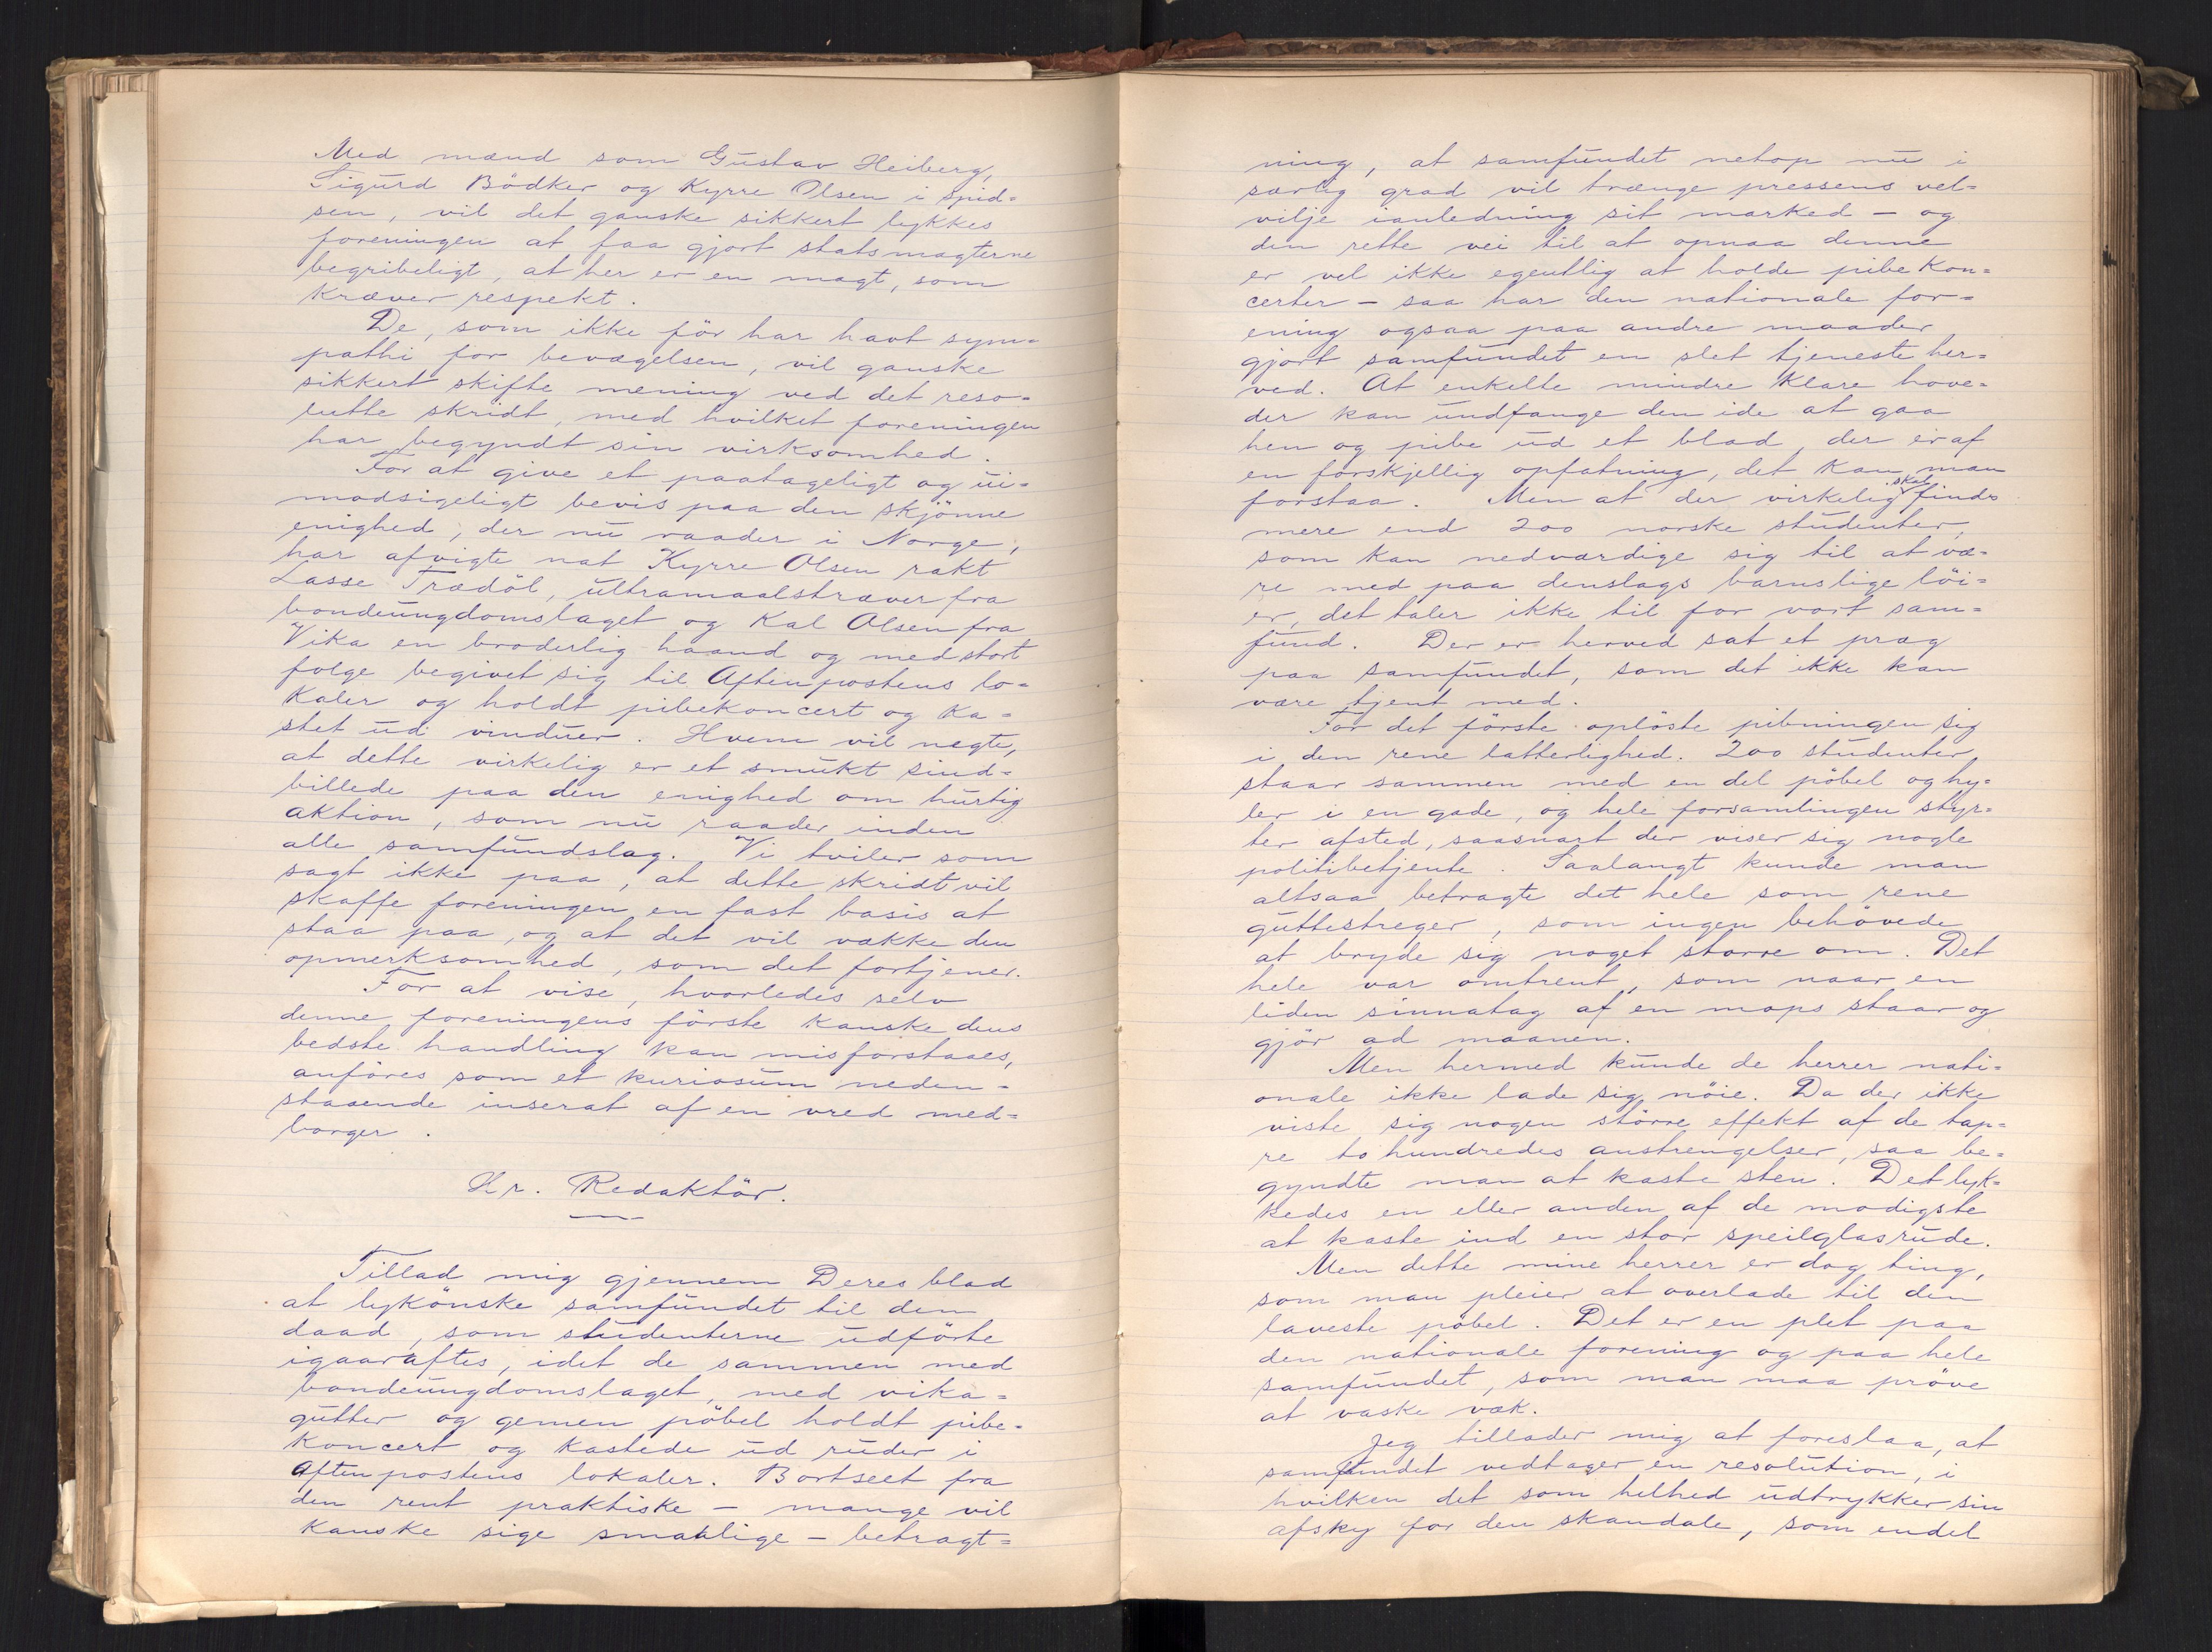 Med mænd som Gustav Heiberg,
Sigurd Bödker og Kyrre Olsen i spid=
sen, vil det ganske sikkert lykkes
foreningen at faa gjort statsmagterne
begribeligt, at her er en magt, som
kræver respekt.
De, som ikke för har havt sym=
pathi for bevægelsen, vil ganske
sikkert skifte mening ved det reso=
lutte skridt, med hvilket foreningen
har begyndt sin virksomhed.
For at give et paatageligt og u=
modsigeligt bevis paa den skjönne
enighed, der nu raader i Norge,
har afvigte nat Kyrre Olsen rakt
Lasse Trædöl, ultramaalstræver fra
bondeungdomslaget og Kal Olsen fra
Vika en broderlig haand og med stort
følge begivet sig til Aftenpostens lo=
kaler og holdt pibekoncert og ka=
stet ud vinduer. Hvem vil negte,
at dette virkelig er et smukt sind=
billede paa den enighed om hurtig
aktion, som nu raader inden
alle samfundslag. Vi tviler som
sagt ikke paa, at dette skridt vil
skaffe foreningen en fast basis at
staa paa, og at det vil vække den
opmerksomhed, som det fortjener.
For at vise, hvorledes selv
denne foreningens förste kanske dens
bedste handling kan misforstaaes,
anföres som et kuriosum neden=
staaende inserat af en vred med=
borger.
Hr. Redaktör.
Tillad mig gjennem Deres blad
at lykönske samfundet til den
daad, som studenterne udförte
igaaraftes, idet de sammen med
bondeungdomslaget, med vika=
gutter og gemen pöbel holdt pibe=
koncert og kastede ud ruder i
Aftenpostens lokaler. Bortseet fra
den rent praktiske – mange vil
kanske sige smaalige – betragt=
ning, at samfundet netop nu i
særlig grad vil trænge pressens vel=
vilje ianledning sit marked – og
den rette vei til at opnaa denne
er vel ikke egentlig at holde pibekon=
certer – saa har den nationale for=
ening ogsaa paa andre maader
gjort samfundet en slet tjeneste her=
ved. At enkelte mindre klare hove=
der kan undfange den ide at gaa
hen og pibe ud et blad, der er af
en forskjellig opfatning, det kan man
forstaa. Men at der virkelig skal findes
mere end 200 norske studenter,
som kan nedværdige sig til at væ=
re med paa denslags barnslige löi=
er, det taler ikke til for vort sam=
fund. Der er herved sat et præg
paa samfundet, som det ikke kan
være tjent med.
For det förste oplöste pibningen sig
i den rene latterlighed. 200 studenter
staar sammen med en del pöbel og hy=
ler i en gade, og hele forsamlingen styr=
ter afsted, saasnart der viser sig nogle
politibetjente. Saalangt kunde man
altsaa betragte det hele som rene
guttestreger, som ingen behövede
at bryde sig noget större om. Det
hele var omtrent, som naar en
liden sinnatag af en mops staar og
gjör ad maanen.
Men hermed kunde de herrer nati=
onale ikke lade sig nöie. Da der ikke
viste sig nogen större effekt af de tap=
re to hundredes anstrengelser, saa be=
gyndte man at kaste sten. Det lyk=
kedes en eller anden af de modigste
at kaste ind en stor speilglasrude.
Men dette mine herrer er dog ting,
som man pleier at overlade til den
laveste pøbel. Det er en plet paa
den nationale forening og paa hele
samfundet, som man maa pröve
at vaske væk.
Jeg tillader mig at foreslaa, at
samfundet vedtager en resolution, i
hvilken det som helhed udtrykker sin
afsky for den skandale, som endel